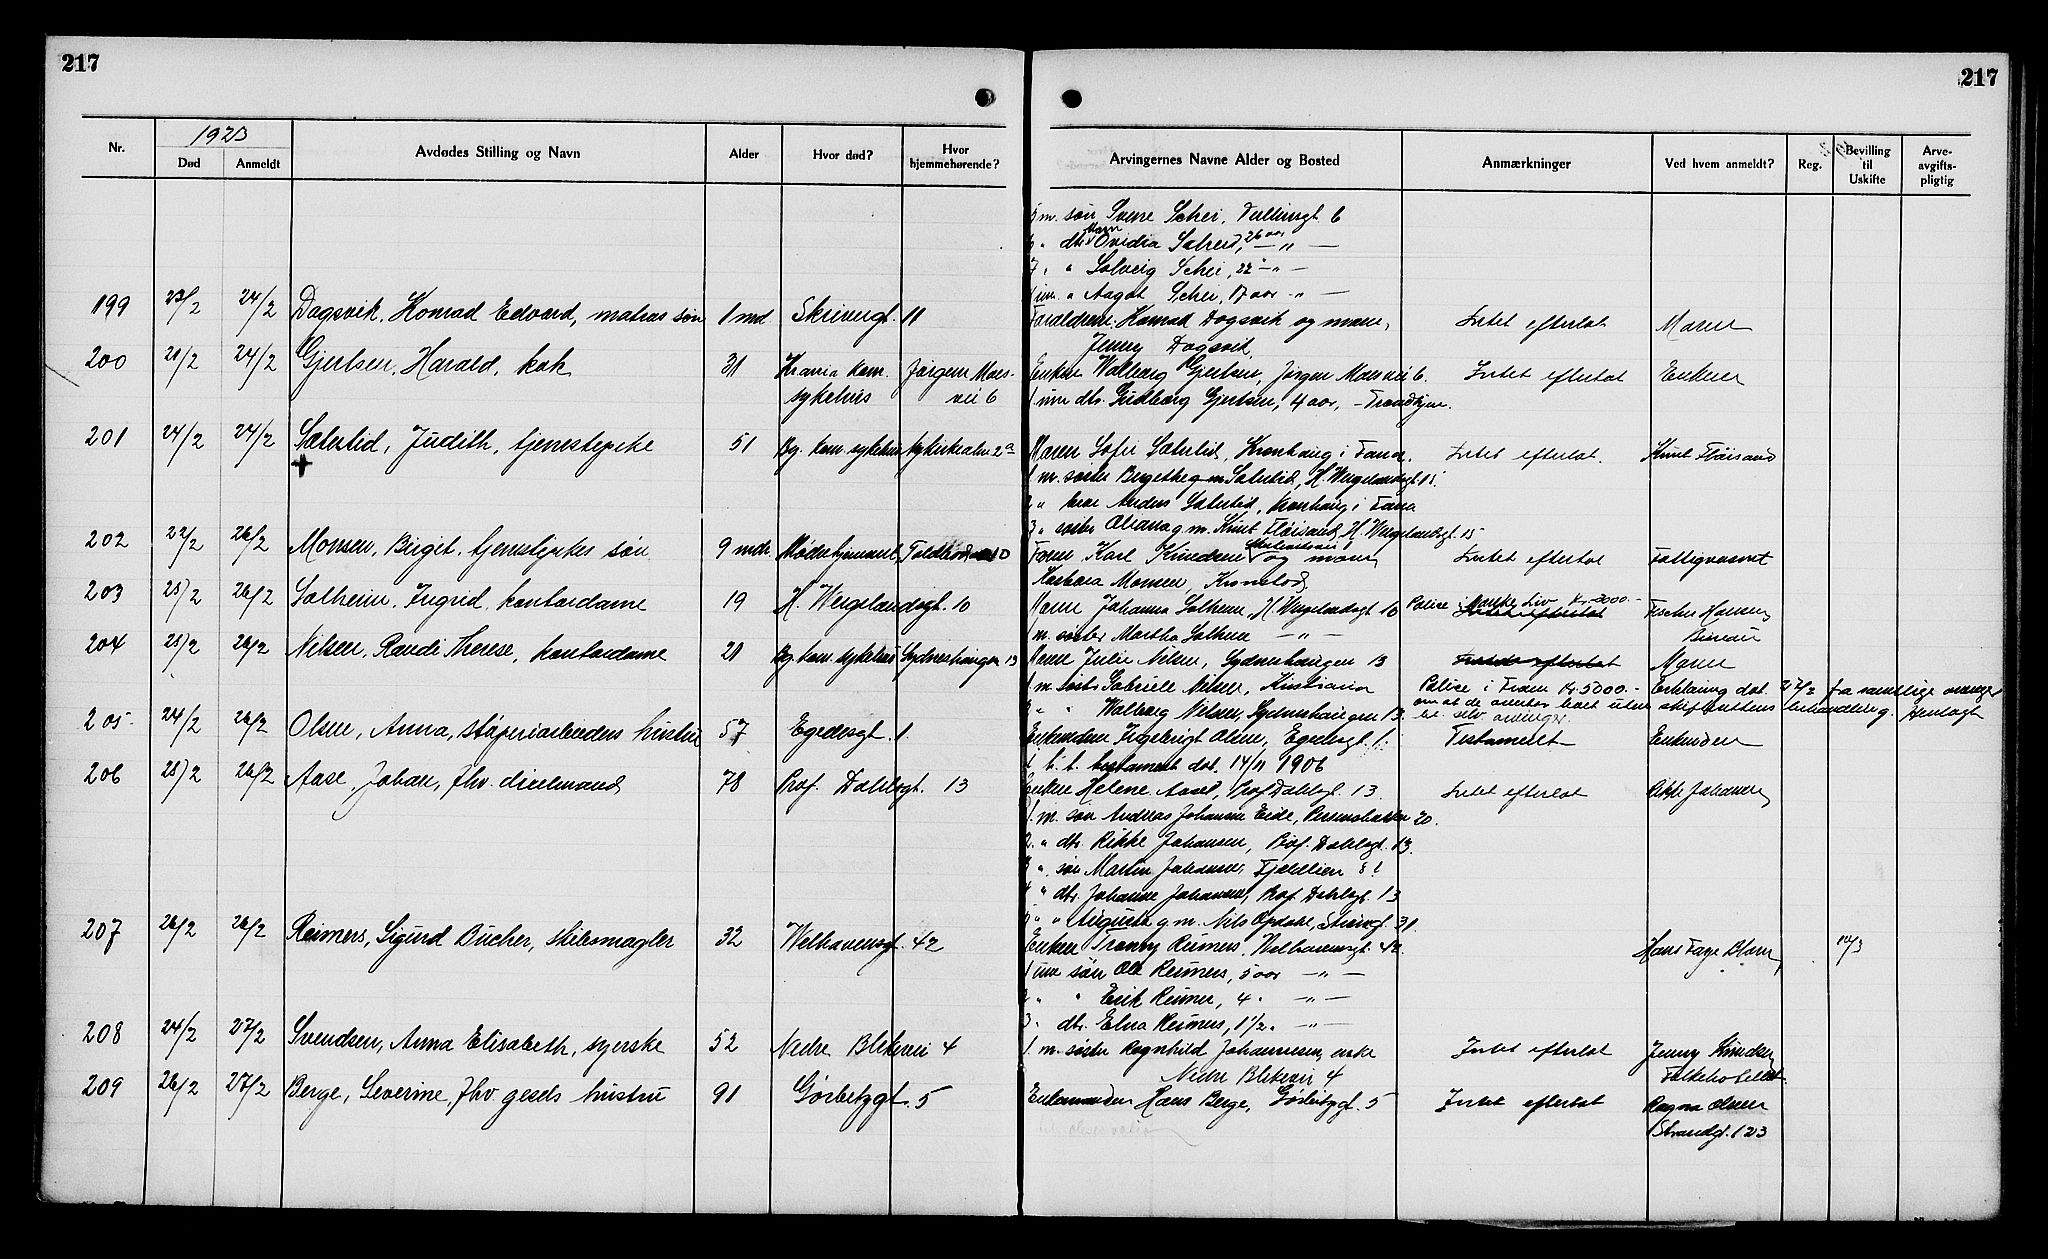 217
217
1923
Nr. Død Anmeldt Avdødes Stilling og Navn Alder Hvor død? Hvor hjemmehørende? Arvingernes Navne Alder og Bosted Anmærkninger Ved hvem anmeldt? Reg. Bevilling til Uskifte Arve-avgifts-pligtig
5 m. søn Sverre Schei, Tullinsgt. 6
" dtr. Ovidia Schei, 26 aar — " —
7 " " Solveig Schei, 22 " — " —
1 um. " Aagot Schei, 17 aar " —
199 23/2 24/2 Dagsvik, Konrad Edvard, matros søn 1 md Skivengt. 11 Forældrene: Konrad Dagsvik og moren, Intet efterlat Moren
Jenny Dagsvik
200 21/2 24/2 Gjertsen, Harald, kok 31 Krania kom. Jørgen Moes- Enken Walborg Gjertsen, Jørgen Moesvei 6. Intet efterlat Enken
sykehus vei 6 1 um dtr. Gudborg Gjertsen, 4 aar, – Trondhjem.
201 24/2 24/2 Sæterlid, Judith, tjenestepike 51 Bg. kom. sykehus Nykirkealm. 2a Moren Sofie Sæterlid, Kronhaug i Fana. Intet efterlat. Knut Fløisand
1 m. søster Bergethe g m Sæterlid, H. Wergelandsgt. 15.
2 " bror Anders Sæterlid, Kronhaug i Fana
3 " søster Oliana g. m. Knut Fløisand, H. Wergelandsgt. 15
202 22/2 26/2 Monsen, Birgit, tjenestepikes søn 9 mdr. Møderhjemmet 10 Faren Karl Knudsen og moren Intet efterlat Fattigvæsnet
Barbara Monsen, Kronstad
203 25/2 26/2 Solheim, Ingrid, kontordame 19 H. Wergelandsgt. 10 Moren Johanna Solheim, H. Wergelandsgt. 10 Police i Norske Liv Kr. 3000.- Intet efterlat Fischer Hansens
1 m. søster Martha Solheim — " — Bureau
204 25/2 26/2 Nilsen, Randi Therese, kontordame 21 Bg. kom. sykehus Sydneshaugen 13 Moren Julie Nilsen, Sydneshaugen 13 Intet efterlat Moren
1 m. søster Gabriele Nilsen, Kristiania Police i Fram Kr. 5000.- Erklæring dat. 27/2 fra samtlige arvinger
2 " " Walborg Nilsen, Sydneshaugen 13. om at de overtar boet uten skifterettens behandling. Henlagt
205 24/2 26/2 Olsen, Anna, støperiarbeiders hustru 57 Egedesgt. 1 Enkemanden Ingebrigt Olsen, Egedesgt. 1. Testament Enkemden
t. testament dat. 14/11 1906
206 25/2 26/2 Aase, Johan, fhv. dixelmand 78 Prof. Dahlsgt. 13 Enken Helene Aase, Prof. Dahlsgt. 13. Intet efterlat Rikke Johansen
1 m. søn Andreas Johansen Eide, 20.
2. " dtr. Rikke Johansen, Prof. Dahlsgt. 13.
3 " søn Martin Johansen, Fjeldlien 8 ?
4 " dtr. Johanne Johansen, Prof. Dahlsgt. 13
" " Augusta g. m. Nils Opdahl, Strandgt. 31.
207 26/2 26/2 Reimers, Sigurd Bucher, skibsmægler 32 Welhavensgt. 42 Enken Fanny Reimers, Welhavensgt. 42. Hans Faye Blom 12/3
1 um søn Ole Reimers, 5 aar — " —
2 " " Erik Reimers, 4 " — " —
3 " dtr. Elna Reimers, 1 1/2 " — " —
208 24/2 27/2 Svendsen, Anna Elisabeth, syerske 52 Nedre Blekevei 4 1 m. søster Ragnhild Johannesen, enke Intet efterlat Jenny Knudsen
Nedre Blekevei 4 Folkehotellet
209 26/2 27/2 Berge, Severine, fhv. gesels hustru 91 Gørbitzgt. 5 Enkemanden Hans Berge, Gørbitzgt. 5 Intet efterlat Ragna Olsen
Strandgt. 123